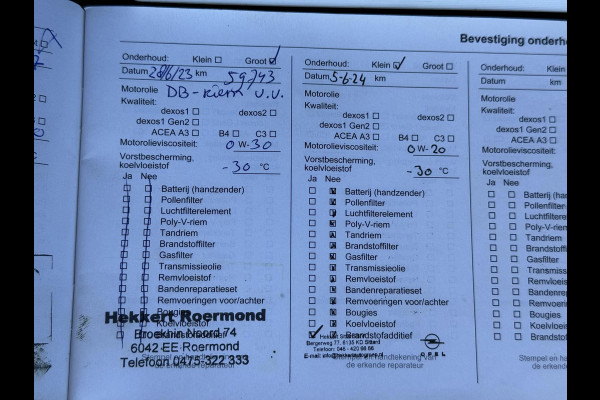 Bevestiging onderh
Onderhoud: Klein Groot
Datum 28/6/23 km 59743
Motorolie
Kwaliteit:
dexos1 dexos2
dexos1 Gen2
ACEA A3 B4 C3
Motorolieviscositeit: 0 W-30
Vorstbescherming,
koelvloeistof -30 °C
Ja Nee
Batterij (handzender)
Pollenfilter
Luchtfilterelement
Poly-V-riem
Tandriem
Brandstoffilter
Gasfilter
Transmissieolie
Remvloeistof
Bandenreparatieset
Remvoeringen voor/achter
Bougies
Koelvloeistof
Hekkert Roermond
Broekhin Noord 74
6042 EE Roermond
Telefoon 0475-322 333
de erkende reparateur
Onderhoud: Klein Groot
Datum 5-6-24 km
Motorolie
Kwaliteit:
dexos1 dexos2
dexos1 Gen2
ACEA A3 B4 C3
Motorolieviscositeit: 0 W-20
Vorstbescherming,
koelvloeistof -30 °C
Ja Nee
Batterij (handzender)
Pollenfilter
Luchtfilterelement
Poly-V-riem
Tandriem
Brandstoffilter
Gasfilter
Transmissieolie
Remvloeistof
Bandenreparatieset
Remvoeringen voor/achter
Bougies
Koelvloeistof
Brandstofadditief
Bergerweg 77, 6135 KD Sittard
Telefoon: 046 - 420 66 66
OPEL
Stempel en handtekening van
de erkende reparateur
Onderhoud: Klein
Datum km
Motorolie
Kwaliteit:
dexos1
dexos1 Gen2
ACEA A3
Motorolieviscositeit:
Vorstbescherming,
koelvloeistof
Ja Nee
Batterij (han
Pollenfilter
Luchtfiltere
Poly-V-rie
Tandriem
Brandstof
Gasfilter
Transmis
Remvloei
Bandenre
Remvoer
Bougies
Koelvloe
Brandst
Stempel en ha
de erken